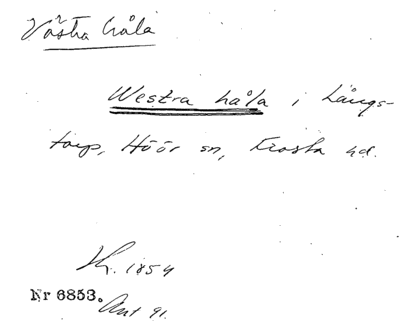 Västra håla
Westra håla i Långs-
torp, Höör sn, Frosta hd.
Kr. 1854
Nr 6853. Ant 91.